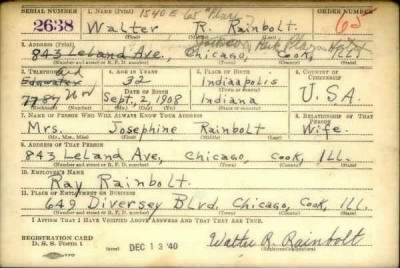 SERIAL NUMBER 1. NAME (Print) 1540 E 65th
2638 Walter R. Rainbolt. 65
2. ADDRESS (Print)
843 Leland Ave., Chicago, Cook, ILL.
3. TELEPHONE 4. AGE IN YEARS 5. PLACE OF BIRTH 6. COUNTRY OF CITIZENSHIP
Edgewater 32 Indianapolis
7784 DATE OF BIRTH Sept, 2, 1908 Indiana U.S.A.
7. NAME OF PERSON WHO WILL ALWAYS KNOW YOUR ADDRESS 8. RELATIONSHIP OF THAT PERSON
Mrs. Josephine Rainbolt Wife.
(Mr., Mrs., Miss) (First) (Middle) (Last)
9. ADDRESS OF THAT PERSON
843 Leland Ave, Chicago, Cook, ILL.
(Number and street or R. F. D. number) (Town) (County) (State)
10. EMPLOYER'S NAME
Ray Rainbolt.
11. PLACE OF EMPLOYMENT OR BUSINESS
649 Diversey Blvd. Chicago, Cook, ILL.
(Number and street or R. F. D. number) (Town) (County) (State)
I AFFIRM THAT I HAVE VERIFIED ABOVE ANSWERS AND THAT THEY ARE TRUE.
REGISTRATION CARD
D. S. S. FORM 1 DEC 13 '40 Walter R. Rainbolt